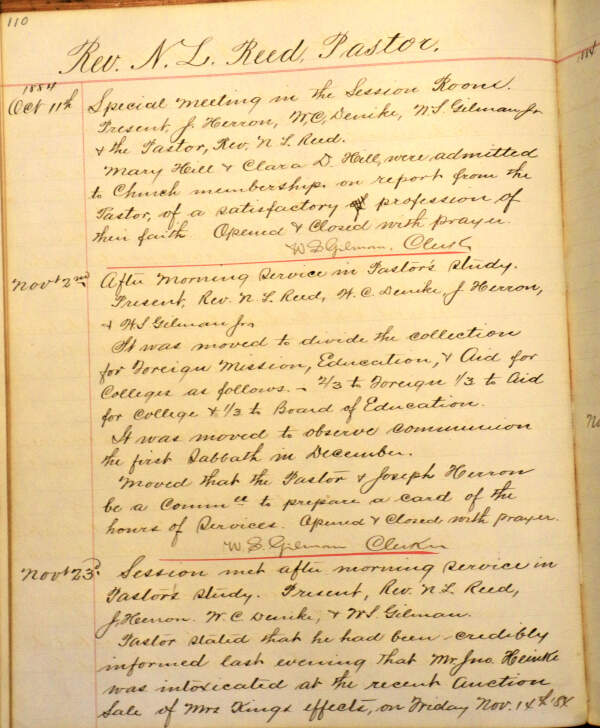 110
Rev. N. L. Reed, Pastor.
1884
Oct 11th Special Meeting in the Session Room.
Present J. Herron, W.C. Denike, W.S. Gilman Jr
& the Pastor, Rev. N. L. Reed.
Mary Hill & Clara D. Hill, were admitted
to Church membership. on report from the
Pastor, of a satisfactory profession of
their faith Opened & Closed with prayer.
W S Gilman, Clerk
Novr 2nd After Morning Service in Pastor's Study.
Present, Rev. N. L. Reed, W. C. Denike, J Herron,
& W S Gilman Jr.
It was moved to divide the collection
for Foreign Mission, Education, & Aid for
Colleges as follows. – 2/3 to Foreign 1/3 to Aid
for College & 1/3 to Board of Education.
It was moved to observe communion
the first Sabbath in December.
Moved that the Pastor & Joseph Herron
be a Commee to prepare a card of the
hours of Services. Opened & Closed with prayer.
W. S. Gilman Clerk
Novr 23d. Session met after morning service in
Pastor's Study. Present, Rev. N L Reed,
J Herron. W. C Denike, & W S Gilman.
Pastor stated that he had been credibly
informed last evening that Mr Jno. Heinke
was intoxicated at the recent Auction
Sale of Mrs Kings effects, on Friday Nov. 14th '84
1884
No